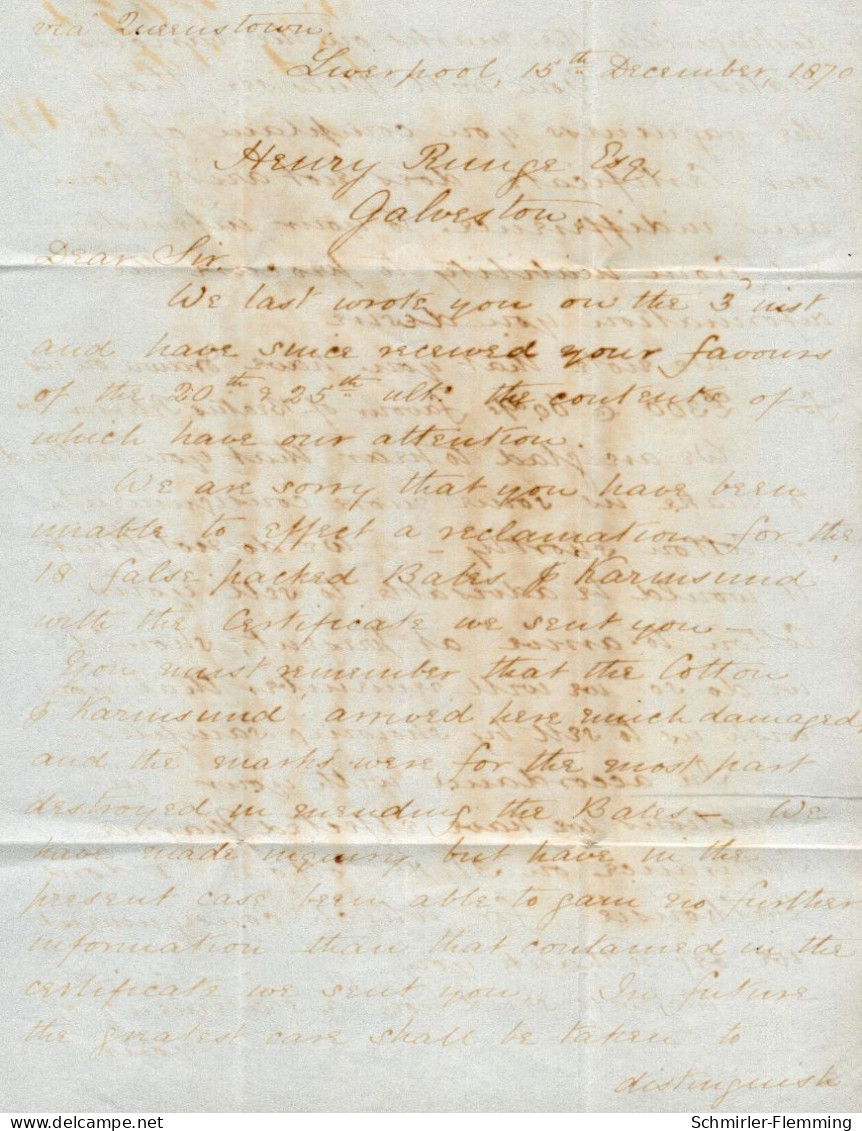 via Queenstown
Liverpool, 15th December, 1870
Henry Runge Esq.
Galveston
Dear Sir,
We last wrote you on the 3d inst
and have since received your favours
of the 20th & 25th ulto. the contents of
which have our attention.
We are sorry that you have been
unable to effect a reclamation for the
18 false packed Bales p Karmsund
with the certificate we sent you —
You must remember that the Cotton
p Karmsund arrived here much damaged,
and the marks were for the most part
destroyed in mending the Bales — We
have made inquiry but have in the
present case been able to gain no further
information than that contained in the
certificate we sent you. In future
the greatest care shall be taken to
distinguish
Schmirler-Flemming